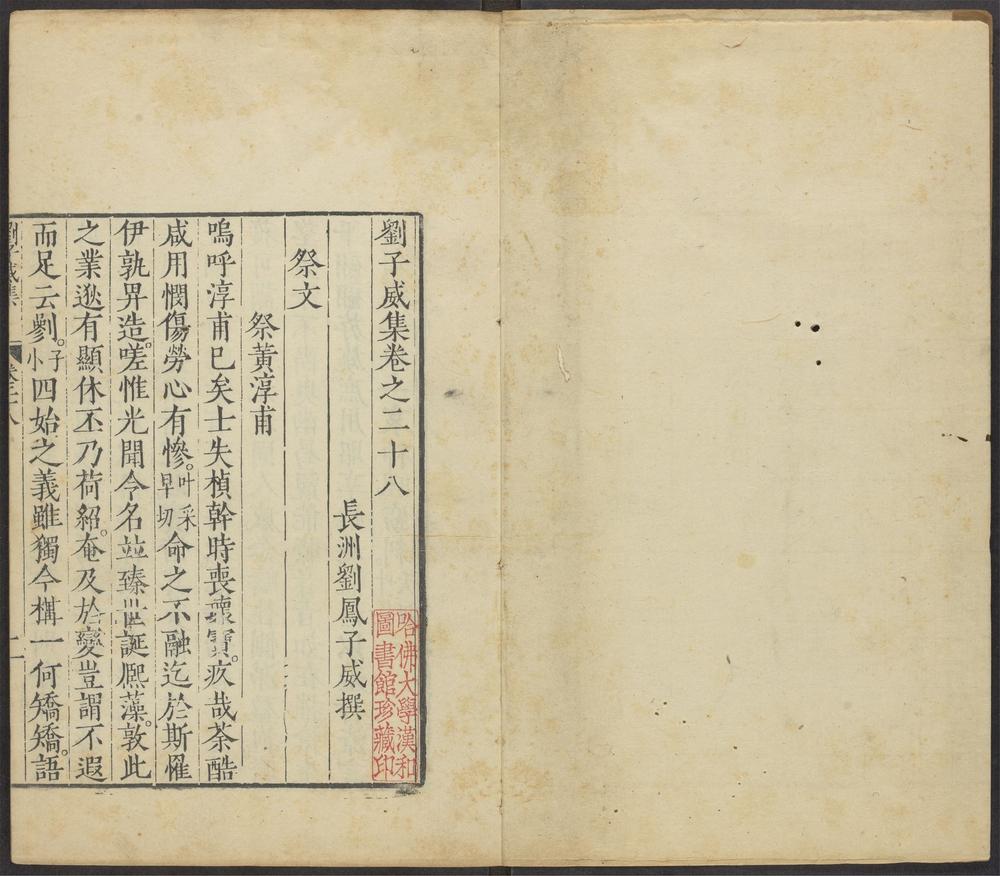 劉子威集卷之二十八
長洲劉鳳子威撰
哈佛大學漢和
圖書館珍藏印
祭文
祭黃淳甫
嗚呼淳甫已矣士失楨幹時喪瓌寶。疚哉荼酷
咸用憫傷勞心有慘。叶采早切命之不融迄於斯罹
伊孰畀造。嗟惟光聞今名竝臻世誕熈藻。敦此
之業逖有顯休丕乃荷紹。奄及於變豈謂不遐
而足云劋。子小四始之義雖獨今構一何矯矯。語
劉子威集
卷二十八
一